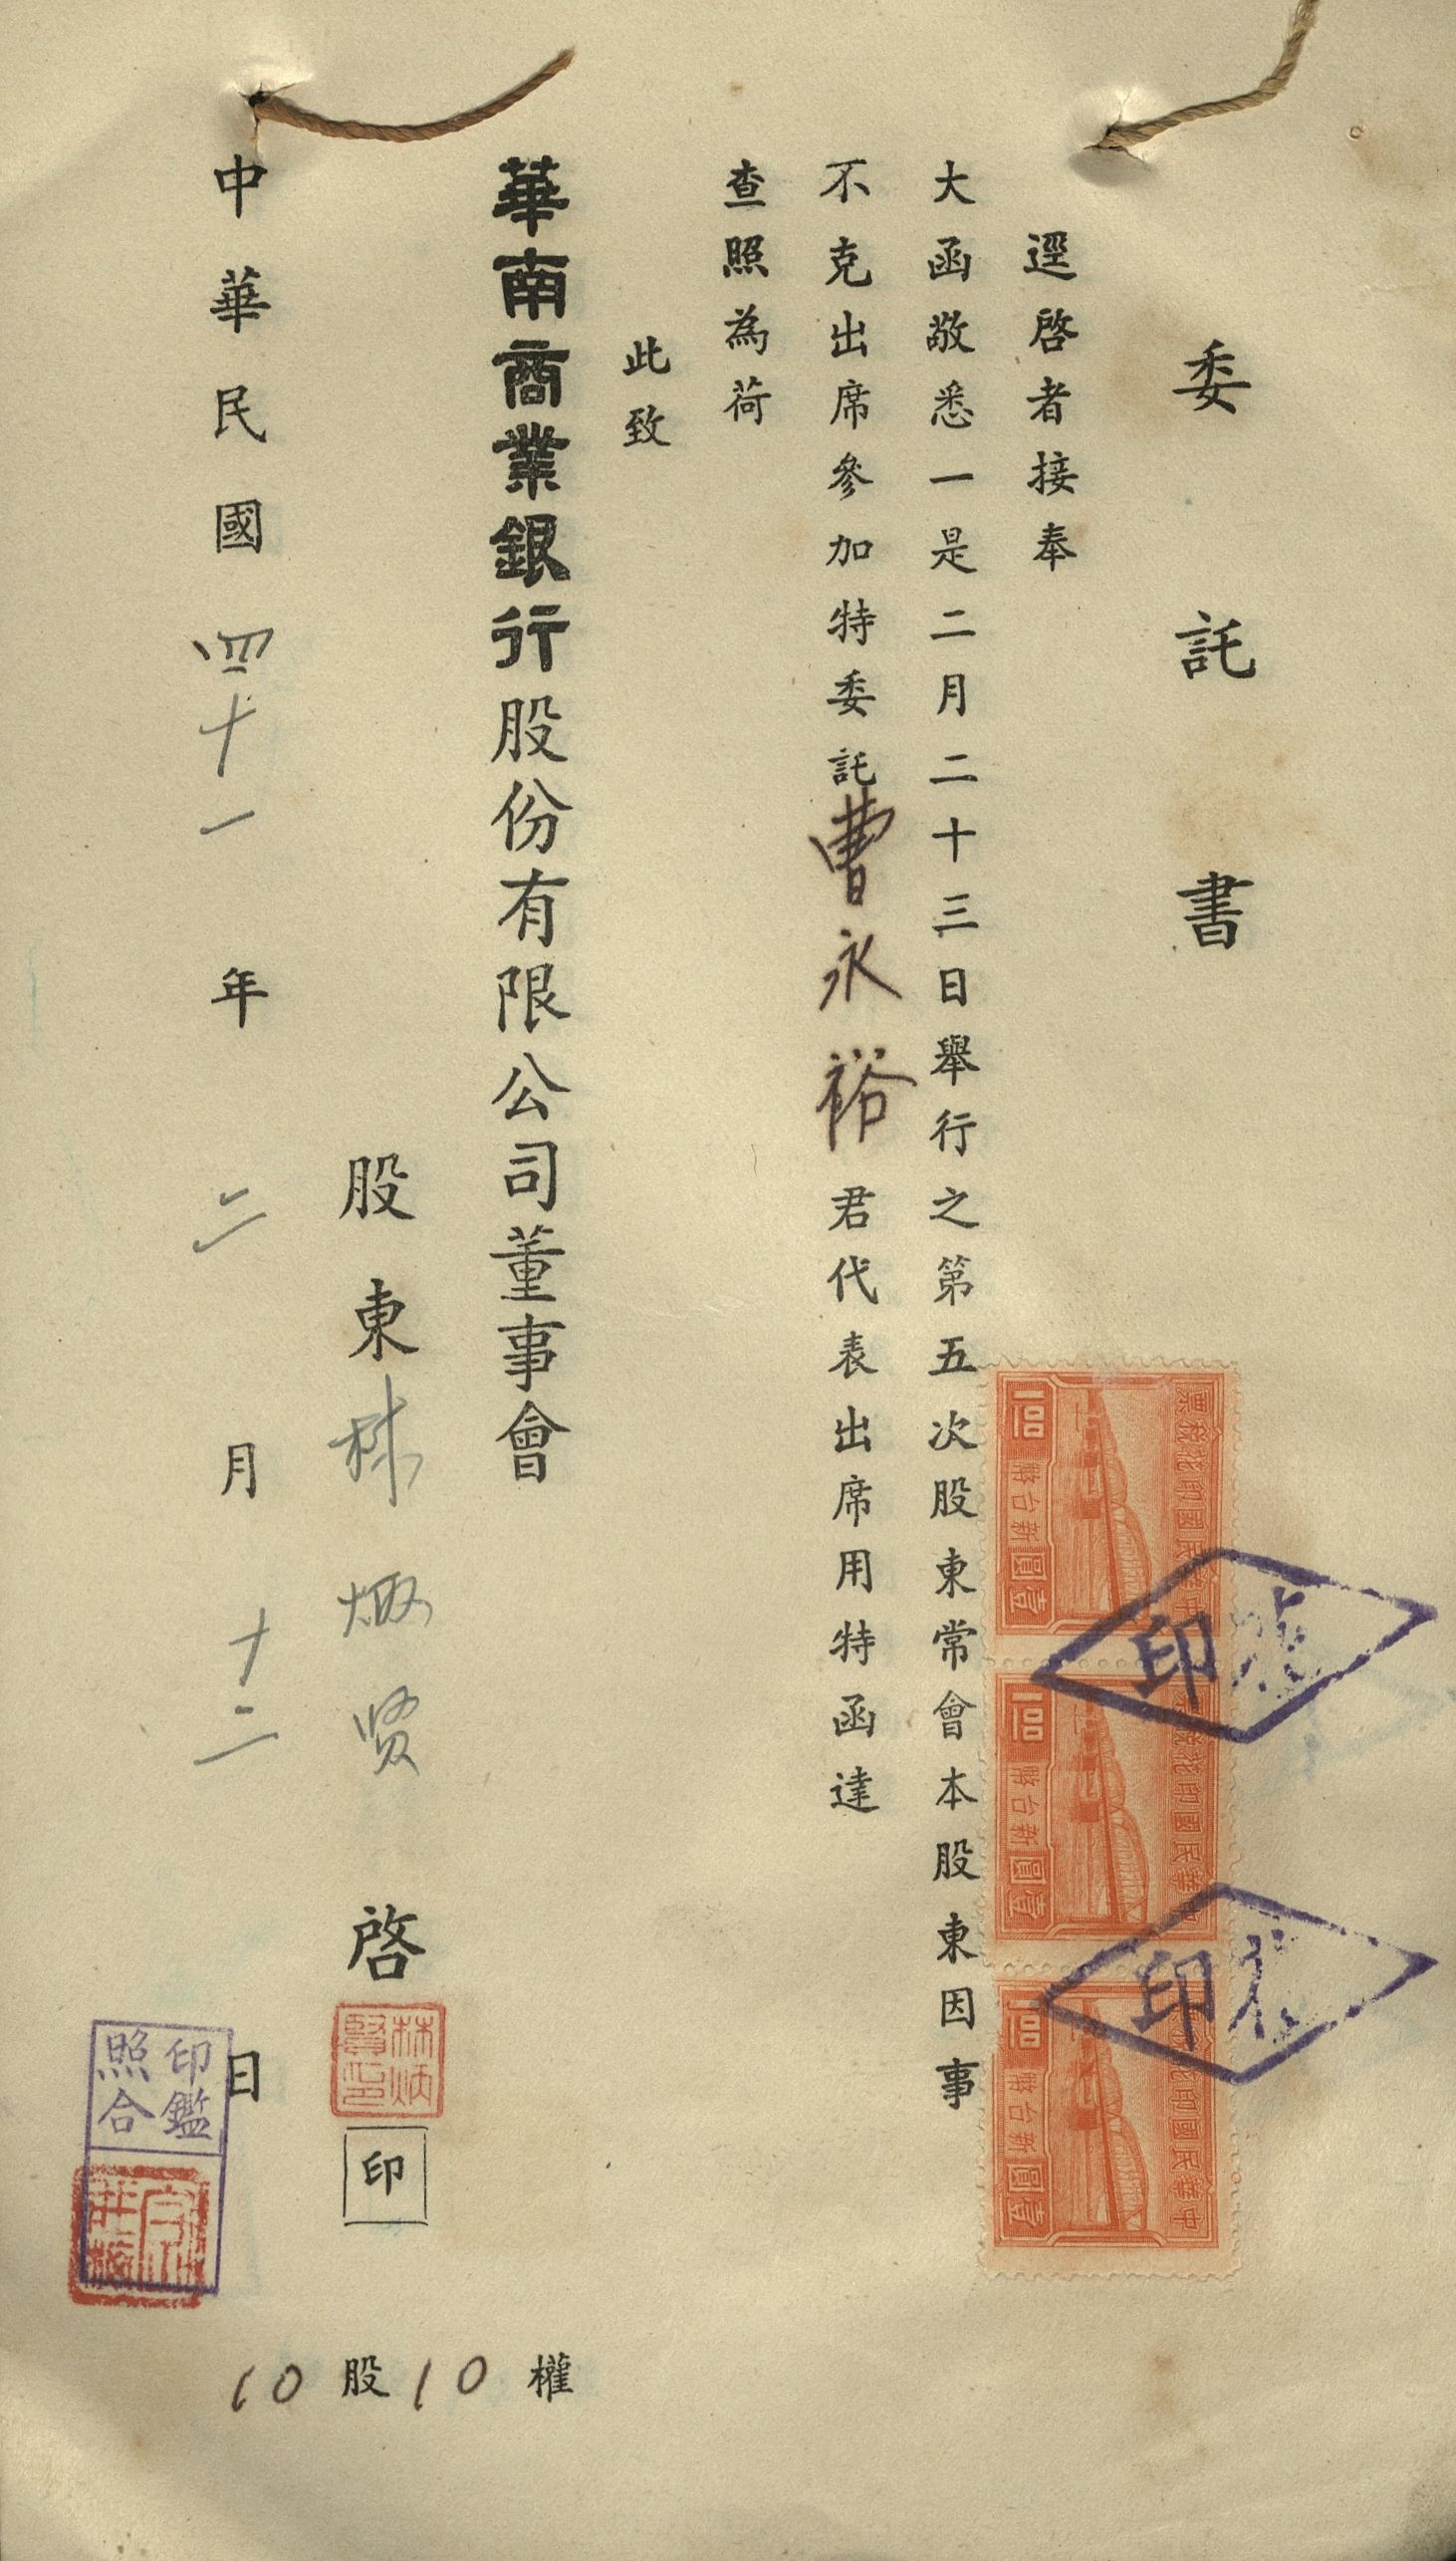 委託書
逕啓者接奉
大函敬悉一是二月二十三日舉行之第五次股東常會本股東因事
不克出席參加特委託曹永裕君代表出席用特函達
查照為荷
此致
華南商業銀行股份有限公司董事會
股東林炳賢啓
林炳賢印
印
中華民國四十一年二月十二日
印鑑照合
10股10權
中華民國印花稅票
新台幣
壹圓
1.00
中華民國印花稅票
新台幣
壹圓
1.00
中華民國印花稅票
新台幣
壹圓
1.00
印
印